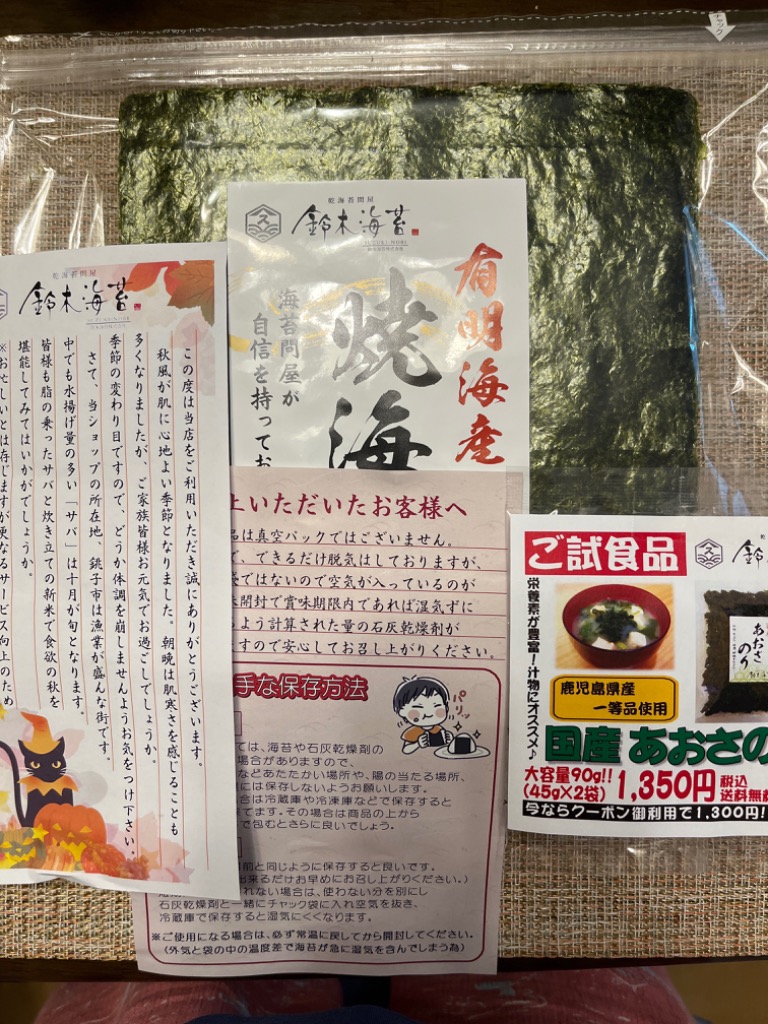 チャック
乾海苔問屋
鈴木海苔
SUZUKI-NORI
鈴木海苔株式会社
有明海産
焼海
海苔問屋が
自信を持ってお
乾海苔問屋
鈴木海苔
SUZUKI-NORI
この度は当店をご利用いただき誠にありがとうございます。
秋風が肌に心地よい季節となりました。朝晩は肌寒さを感じることも
多くなりましたが、ご家族皆様お元気でお過ごしでしょうか。
季節の変わり目ですので、どうか体調を崩しませんようお気をつけ下さい。
さて、当ショップの所在地、銚子市は漁業が盛んな街です。
中でも水揚げ量の多い「サバ」は十月が旬となります。
皆様も脂の乗ったサバと炊き立ての新米で食欲の秋を
堪能してみてはいかがでしょうか。
※お忙しいとは存じますが更なるサービス向上のため
上いただいたお客様へ
品は真空パックではございません。
で、できるだけ脱気はしておりますが、
ではないので空気が入っているのが
未開封で賞味期限内であれば湿気ずに
るよう計算された量の石灰乾燥剤が
ますので安心してお召し上がりください。
手な保存方法
パリッ
ては、海苔や石灰乾燥剤の
場合がありますので、
などあたたかい場所や、陽の当たる場所、
には保存しないようお願いします。
合は冷蔵庫や冷凍庫などで保存すると
てます。その場合は商品の上から
で包むとさらに良いでしょう。
前と同じように保存すると良いです。
出来るだけお早めにお召し上がりください。）
れない場合は、使わない分を別にし
石灰乾燥剤と一緒にチャック袋に入れ空気を抜き、
冷蔵庫で保存すると湿気にくくなります。
※ご使用になる場合は、必ず常温に戻してから開封してください。
（外気と袋の中の温度差で海苔が急に湿気を含んでしまう為）
ご試食品
鈴
栄養素が豊富！汁物にオススメ♪
あおさのり
鹿児島県産
一等品使用
国産 あおさの
大容量90g!!
(45g×2袋)
1,350円
税込
送料無料
今ならクーポン御利用で1,300円!!